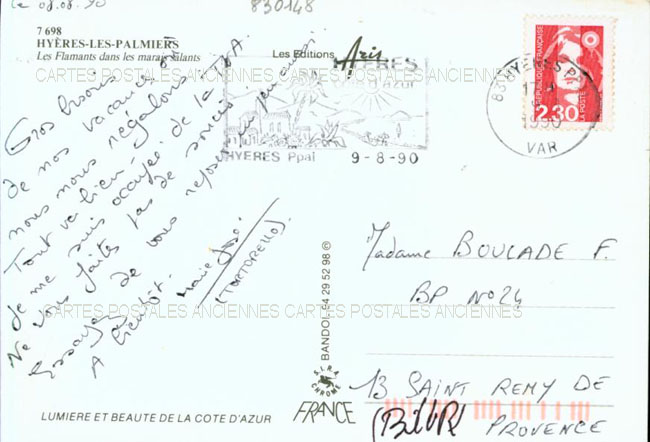 le 08.08.90
830148
7 698
HYÈRES-LES-PALMIERS
Les Flamants dans les marais salants
Les Editions Aris
CARTES POSTALES ANCIENNES CARTES POSTALES ANCIENNES
HYERES
côte d'azur
HYERES Ppal 9-8-90
83 HYERES PAL
17H
1990
VAR
REPUBLIQUE FRANÇAISE
2.30
Gros bisous
de nos vacances
nous nous régalons
Tout va bien. J'ai
me suis occupée de la TVA.
Ne vous faites pas de soucis.
Essayez de vous reposer un peu aussi
A bientôt.
Marie José.
(TORTORELLO).
Madame BOUCADE F.
BP No 24
CARTES POSTALES ANCIENNES CARTES POSTALES ANCIENNES
13 SAINT REMY DE
PROVENCE
© BANDOL 94 29 52 98
S.I.R.A.
CHROME
FRANCE
LUMIERE ET BEAUTE DE LA COTE D'AZUR